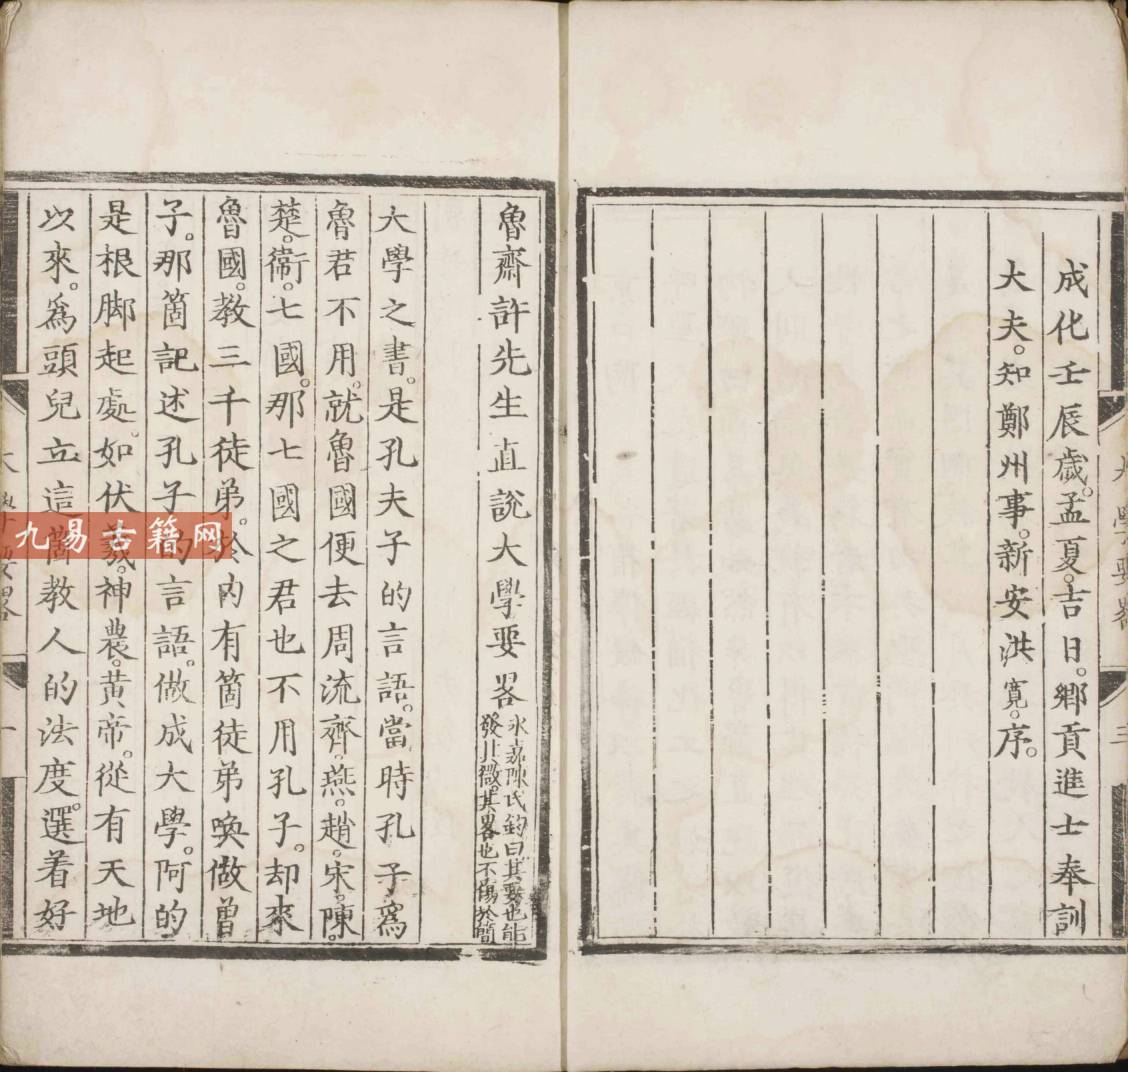 成化壬辰歲。孟夏。吉日。鄉貢進士奉訓
大夫。知鄭州事。新安洪寬。序。
大學要畧
三
魯齋許先生直說大學要畧
永嘉陳氏鈞曰其要也能
發其微。其畧也不傷於簡
大學之書。是孔夫子的言語。當時孔子爲
魯君不用。就魯國便去周流齊。燕。趙。宋。陳。
楚。衞。七國。那七國之君也不用孔子。却來
魯國。教三千徒弟。於內有箇徒弟喚做曾
子。那箇記述孔子的言語。做成大學。阿的
是根脚起處。如伏羲。神農。黃帝。從有天地
以來。爲頭兒立這箇教人的法度。選着好
大學要畧
一
九易古籍网